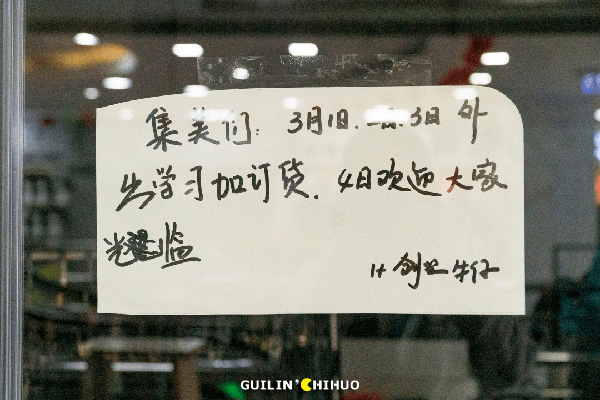 集美们：3月1日.二日.3日 外
出学习加订货.4日欢迎大家
光临
1+创业牛仔
GUILIN'CHIHUO